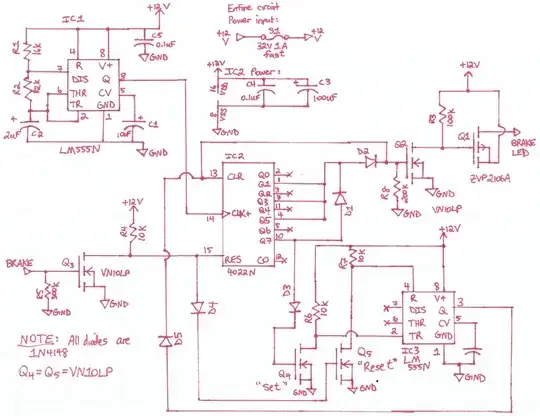 IC1
+12V
R1
1K
R2
C2
4
8
R
V+
7
DIS
Q
6
THR
CV
5
2
TR
GND
1
LM555N
C5
0.1uF
GND
C1
GND
Entire circuit
Power input:
+12V
S1
+12V
32V 1A
fast
+12V
IC2 Power:
16
VDD
8
VSS
GND
C4
0.1uF
C3
100uF
IC2
13
CLR
14
CLK+
15
RES
4022N
Q0
Q1
Q2
Q3
Q4
Q5
Q6
Q7
CO
2
1
3
7
11
4
5
10
12
D2
D1
D3
D4
D5
Q2
VN10LP
R8
200K
GND
+12V
R3
100K
Q1
ZVP2106A
BRAKE
LED
GND
+12V
R4
10K
BRAKE
Q3
VN10LP
R5
200K
GND
GND
R6
10K
R7
10K
+12V
4
8
R
V+
7
DIS
Q
3
6
THR
CV
5
2
TR
GND
1
IC3
LM
555N
GND
Q4
"Set"
GND
Q5
"Reset"
GND
NOTE: All diodes are
1N4148
Q4=Q5=VN10LP